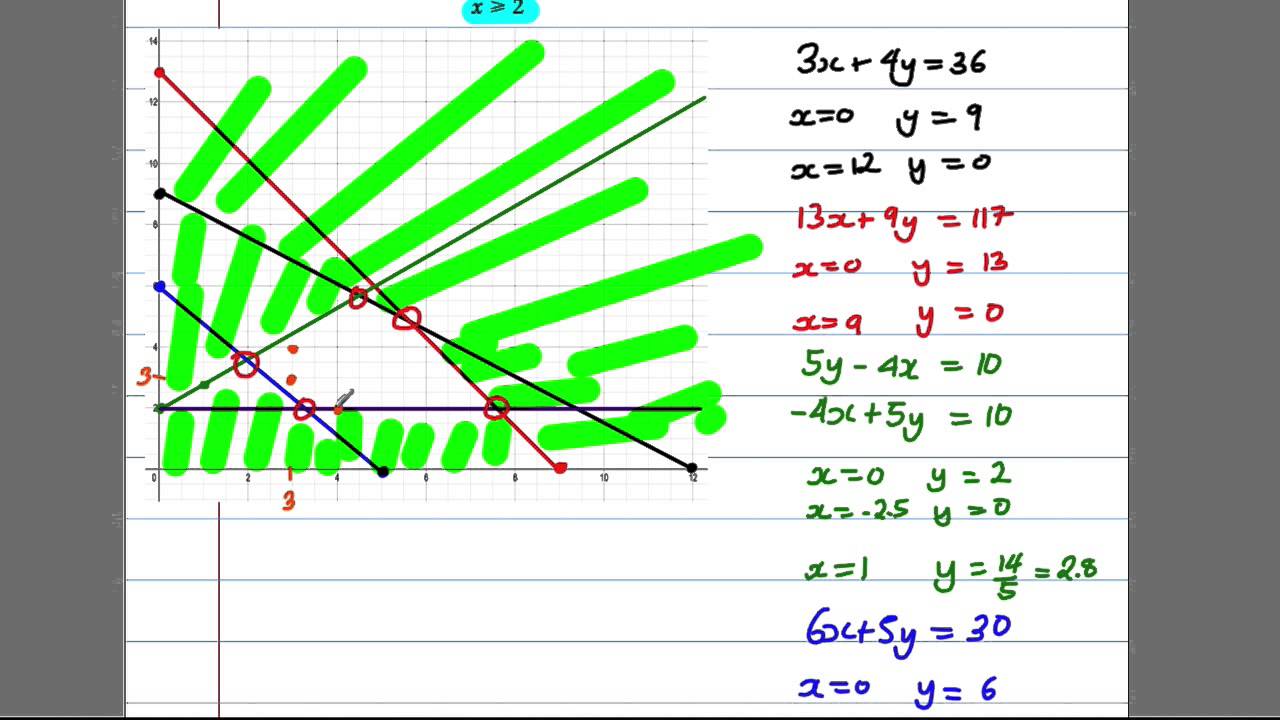 x ⩾ 2
14
12
10
8
4
3
2
0 2 4 6 8 10 12
3
3x + 4y = 36
x=0 y = 9
x=12 y = 0
13x + 9y = 117
x=0 y = 13
x=9 y = 0
5y - 4x = 10
-4x + 5y = 10
x=0 y = 2
x=-2.5 y = 0
x=1 y = 14/5 = 2.8
6x+5y = 30
x=0 y = 6